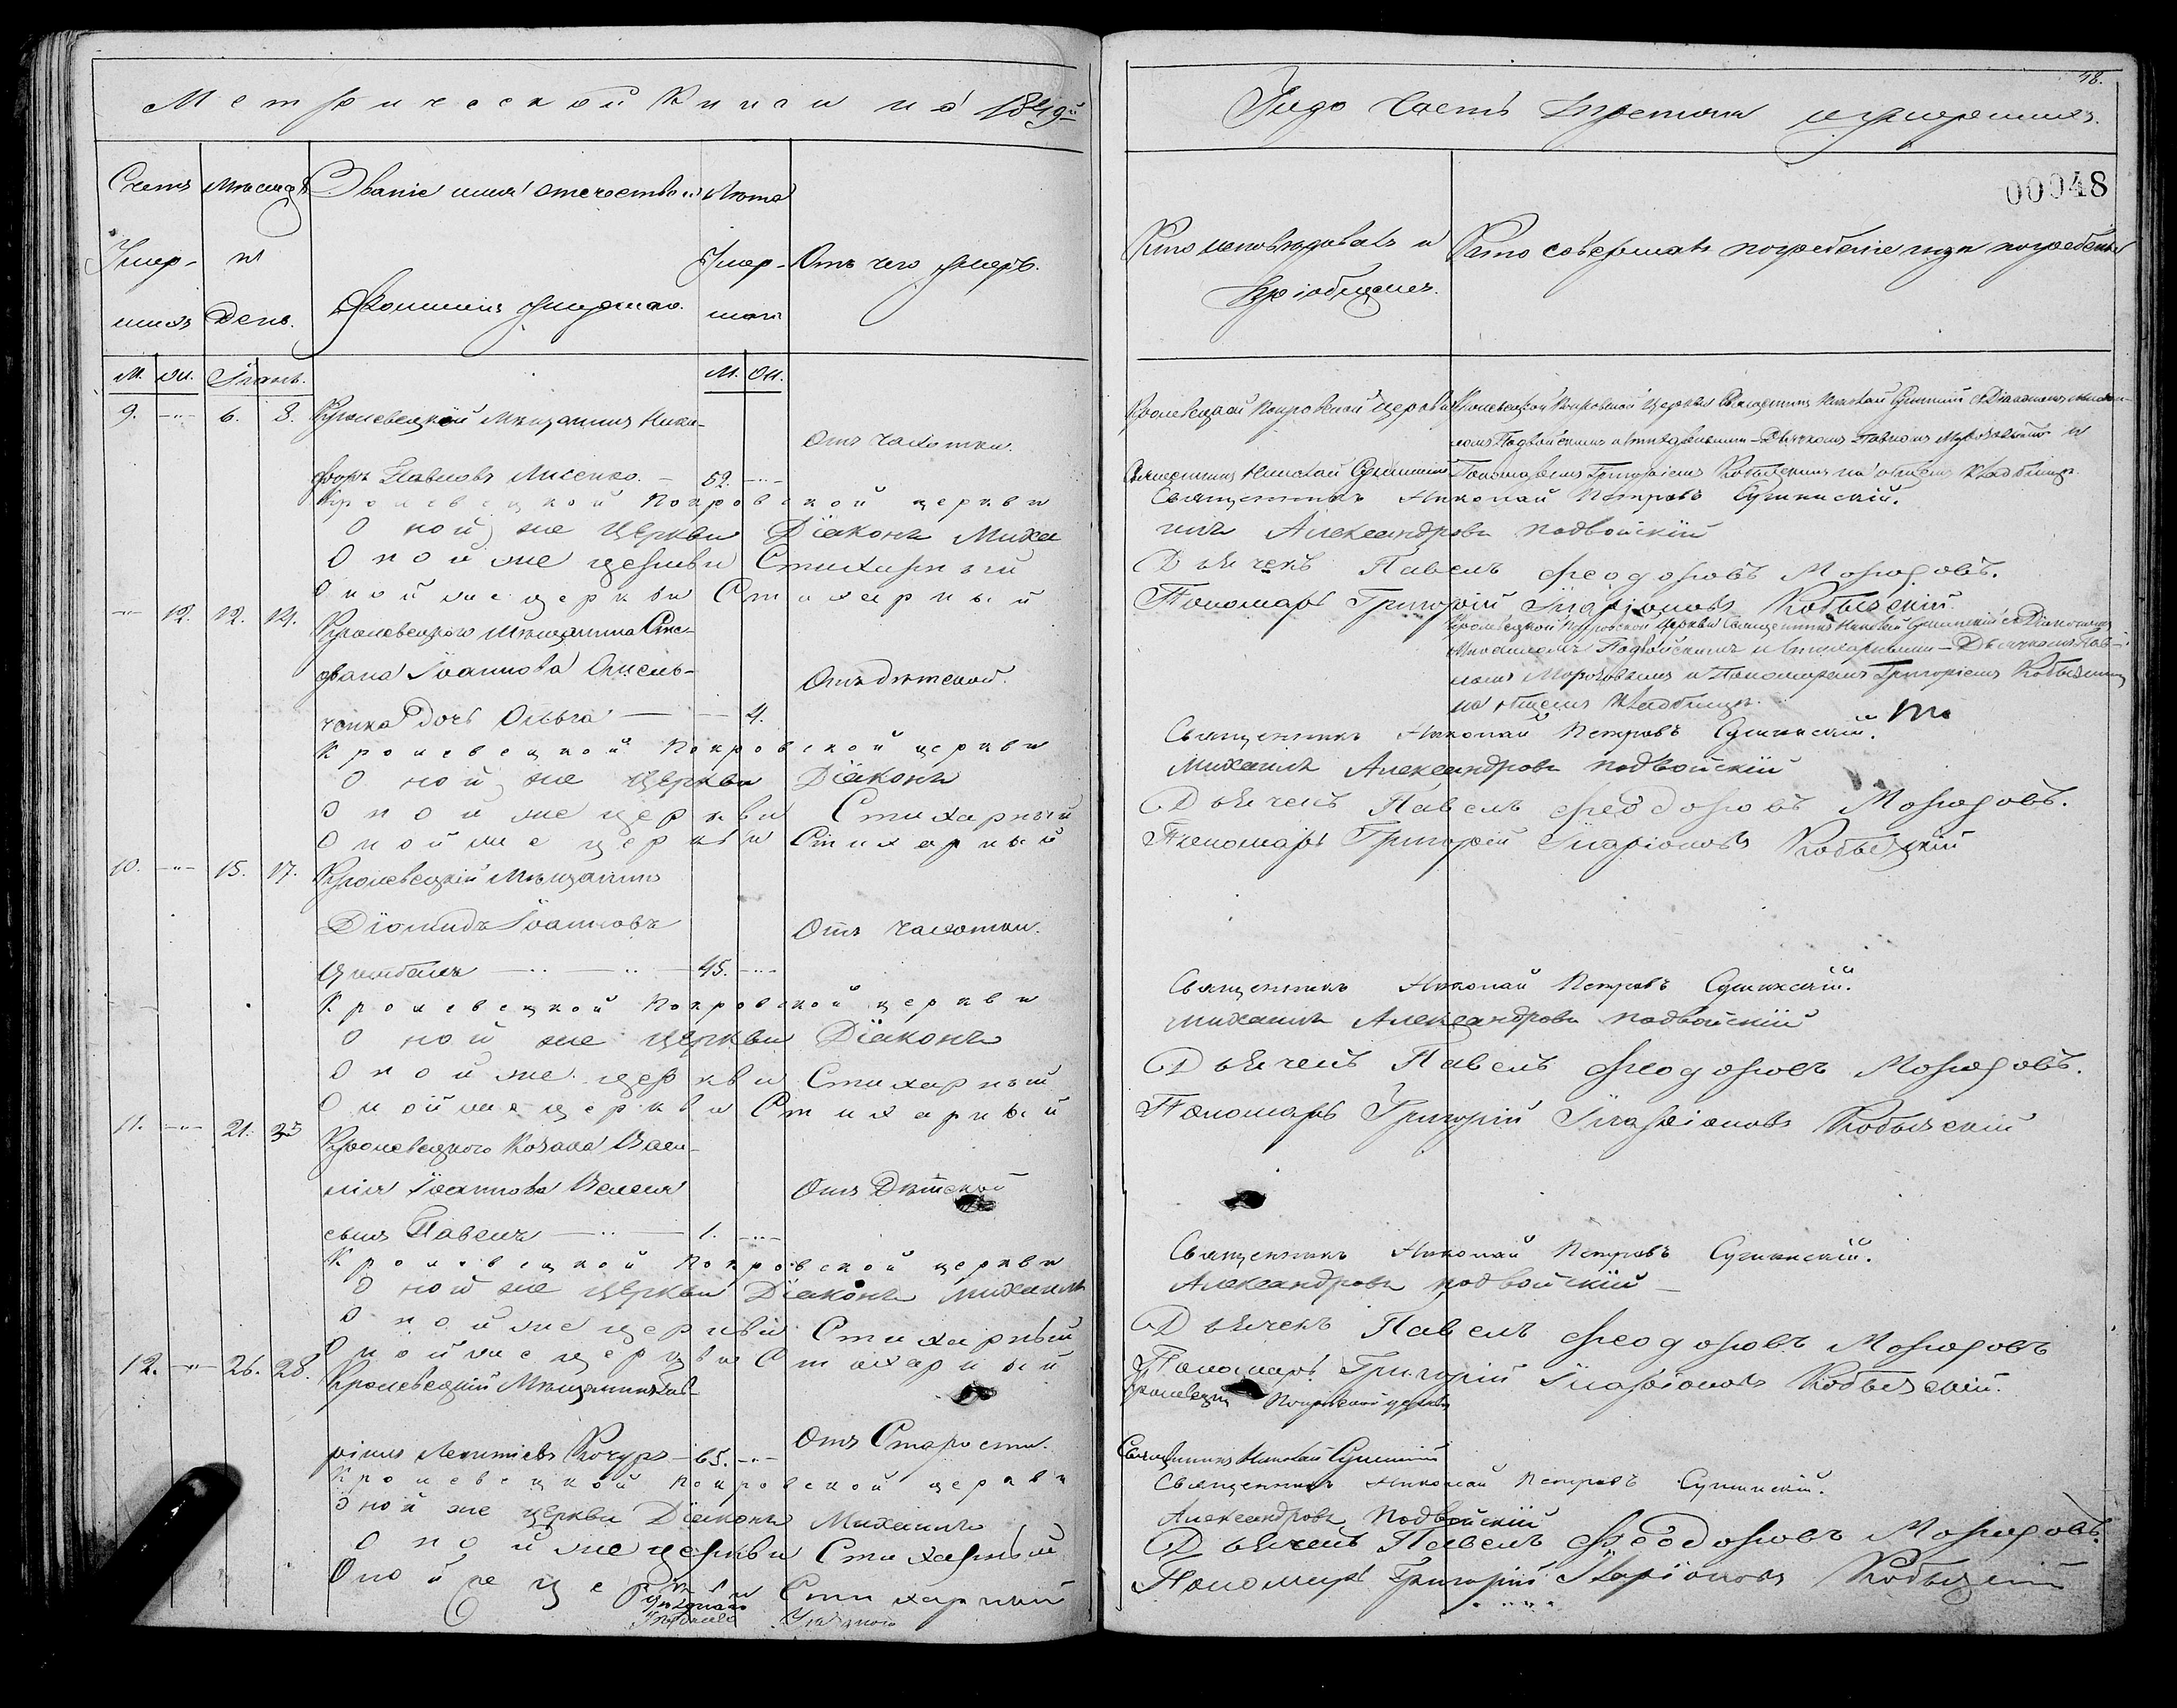 Метрической Книги на 1849й
Счетъ Мѣсяцъ Званіе имя отечество и Лѣта
Умер- и Умер- Отъ чего умеръ.
шихъ День. Фамилія умершаго. шаго
М. Ж. Гланв. М. Ж.
9. -"- 6. 8. Кролевецкій Мѣщанинъ Ники-
Отъ чахотки.
форъ Павловъ Лисенко. - 52. -"-
Кролевецкой Покровской церкви
Оной же церкви Діаконъ Миха
Оной же церкви Стихарный
Оной же церкви Стихарный
-"- 12. 12. 14. Кролевецкого Мѣщанина Сте-
фана Іоаннова Омель-
Отъ дѣтской.
ченка Дочь Ольга — — 4.
Кролевецкой Покровской церкви
Оной же церкви Діаконъ
Оной же церкви Стихарный
Оной же церкви Стихарный
10. -"- 15. 17. Кролевецкій Мѣщанинъ
Діомидъ Іоанновъ Отъ чахотки.
Цимбалъ — 45. -"-
Кролевецкой Покровской церкви
Оной же церкви Діаконъ
Оной же церкви Стихарный
Оной же церкви Стихарный
11. -"- 21. 23 Кролевецкого Козака Васи-
лія Іоаннова Отъ Дѣтской
сынъ Павелъ — 1. -"-
Кролевецкой Покровской церкви
Оной же церкви Діаконъ Михаилъ
Оной же церкви Стихарный
Оной же церкви Стихарный
12. -"- 26. 28. Кролевецкій Мѣщанинъ Гав-
Отъ Старости.
ріилъ Леонтіевъ Кочуръ - 65. -"-
Кролевецкой Покровской церкви
Оной же церкви Діаконъ Михаилъ
Оной же церкви Стихарный
Оной же церкви Стихарный
18.
Года Часть Третья умершихъ.
00048
Кто исповѣдовалъ и Кто совершалъ погребеніе и гдѣ погребены
Пріобщалъ.
Кролевецкой Покровской церкви Кролевецкой Покровской Церкви Священникъ Николай Сушинскій съ Діакономъ Михаи-
ломъ Подвойскимъ и Стихарными — Дьячкомъ Павломъ Морозовымъ и
Священникъ Николай Сушинскій Пономаремъ Григоріемъ Кобызскимъ на общемъ кладбищѣ.
Священникъ Николай Петровъ Сушинскій.
илъ Александровъ Подвойскій
Дьячекъ Павелъ Феодоровъ Морозовъ.
Пономарь Григорій Иларіоновъ Кобызскій
Кролевецкой Покровской Церкви Священникъ Николай Сушинскій съ Діакономъ
Михаиломъ Подвойскимъ и Стихарными — Дьячкомъ Пав-
ломъ Морозовымъ и Пономаремъ Григоріемъ Кобызскимъ
на общемъ Кладбищѣ.
Священникъ Николай Петровъ Сушинскій.
Михаилъ Александровъ Подвойскій
Дьячекъ Павелъ Феодоровъ Морозовъ.
Пономарь Григорій Иларіоновъ Кобызскій
Священникъ Николай Петровъ Сушинскій.
Михаилъ Александровъ Подвойскій
Дьячекъ Павелъ Феодоровъ Морозовъ.
Пономарь Григорій Иларіоновъ Кобызскій
Священникъ Николай Петровъ Сушинскій.
Александровъ Подвойскій
Дьячекъ Павелъ Феодоровъ Морозовъ
Пономарь Григорій Иларіоновъ Кобызскій.
Кролевецкой Покровской церкви
Священникъ Николай Сушинскій
Священникъ Николай Петровъ Сушинскій.
Александровъ Подвойскій
Дьячекъ Павелъ Феодоровъ Морозовъ.
Пономарь Григорій Иларіоновъ Кобызскій